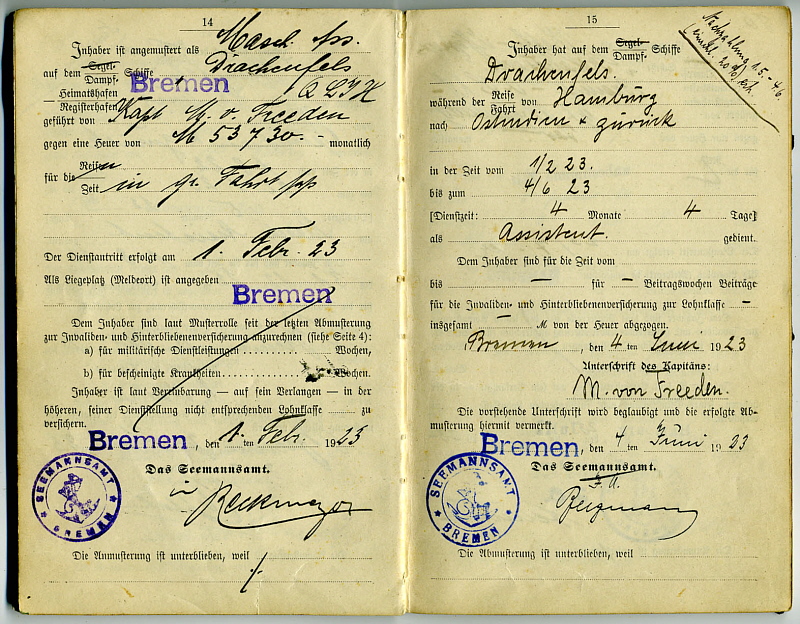 14
Inhaber ist angemustert als Masch. Ass.
auf dem Segel- Dampf- Schiffe Drachenfels
Heimatshafen Bremen QLJK
Registerhafen
geführt von Kapt M. v. Freeden
gegen eine Heuer von M 53730.- monatlich
für die Reisen
Zeit in gr. Fahrt
Der Dienstantritt erfolgt am 1. Febr. 23
Als Liegeplatz (Meldeort) ist angegeben
Bremen
Dem Inhaber sind laut Musterrolle seit der letzten Abmusterung
zur Invaliden- und Hinterbliebenenversicherung anzurechnen (siehe Seite 4):
a) für militärische Dienstleistungen .......... Wochen,
b) für bescheinigte Krankheiten .......... Wochen.
Inhaber ist laut Vereinbarung — auf sein Verlangen — in der
höheren, seiner Dienststellung nicht entsprechenden Lohnklasse zu
versichern.
Bremen, den 1. Febr. 1923
Das Seemannsamt.
SEEMANNSAMT BREMEN
Die Anmusterung ist unterblieben, weil
15
Nachzahlung
Inhaber hat auf dem Segel- Dampf- Schiffe
Drachenfels.
während der Reise Fahrt von Hamburg
nach Ostindien & zurück
in der Zeit vom 1/2 23.
bis zum 4/6 23
[Dienstzeit: 4 Monate 4 Tage]
als Assistent. gedient.
Dem Inhaber sind für die Zeit vom
bis — für — Beitragswochen Beiträge
für die Invaliden- und Hinterbliebenenversicherung zur Lohnklasse —
insgesamt — M von der Heuer abgezogen.
Bremen, den 4 ten Juni 1923
Unterschrift des Kapitäns:
M. von Freeden.
Die vorstehende Unterschrift wird beglaubigt und die erfolgte Ab-
musterung hiermit vermerkt.
Bremen, den 4 ten Juni 1923
Das Seemannsamt.
SEEMANNSAMT BREMEN
Die Abmusterung ist unterblieben, weil